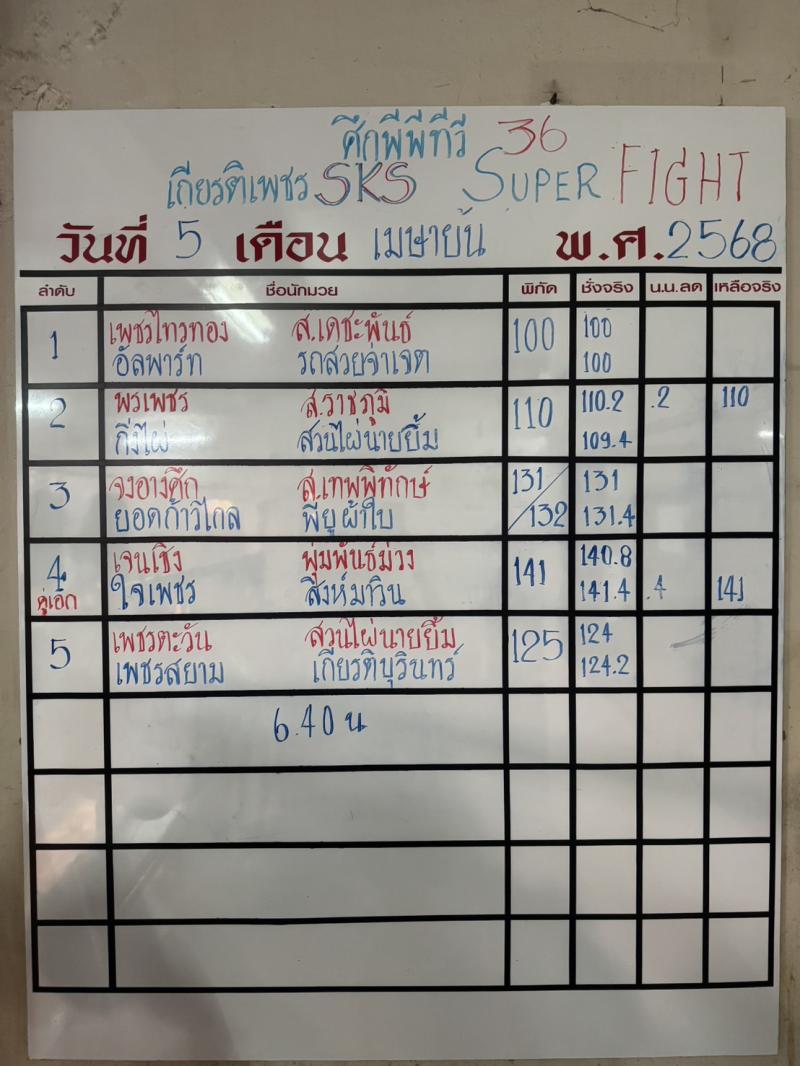 ศึกพีพีทีวี 36
เกียรติเพชร SKS SUPER FIGHT
วันที่ 5 เดือน เมษายน พ.ศ. 2568
ลำดับ ชื่อนักมวย พิกัด ชั่งจริง น.น.ลด เหลือจริง
1 เพชรไทรทอง ส.เดชะพันธ์ 100 100
อัลพาร์ท รถสวยจ่าเจต 100
2 พรเพชร ส.ราชภูมิ 110 110.2 .2 110
กิ่งไผ่ สวนไผ่นายยิ้ม 109.4
3 จงอางศึก ส.เทพพิทักษ์ 131/ 131
ยอดก้าวไกล พียูผ้าใบ /132 131.4
4 เจนเชิง พุ่มพันธ์ม่วง 141 140.8
คู่เอก ใจเพชร สิงห์มาวิน 141.4 .4 141
5 เพชรตะวัน สวนไผ่นายยิ้ม 125 124
เพชรสยาม เกียรติบุรินทร์ 124.2
6.40 น